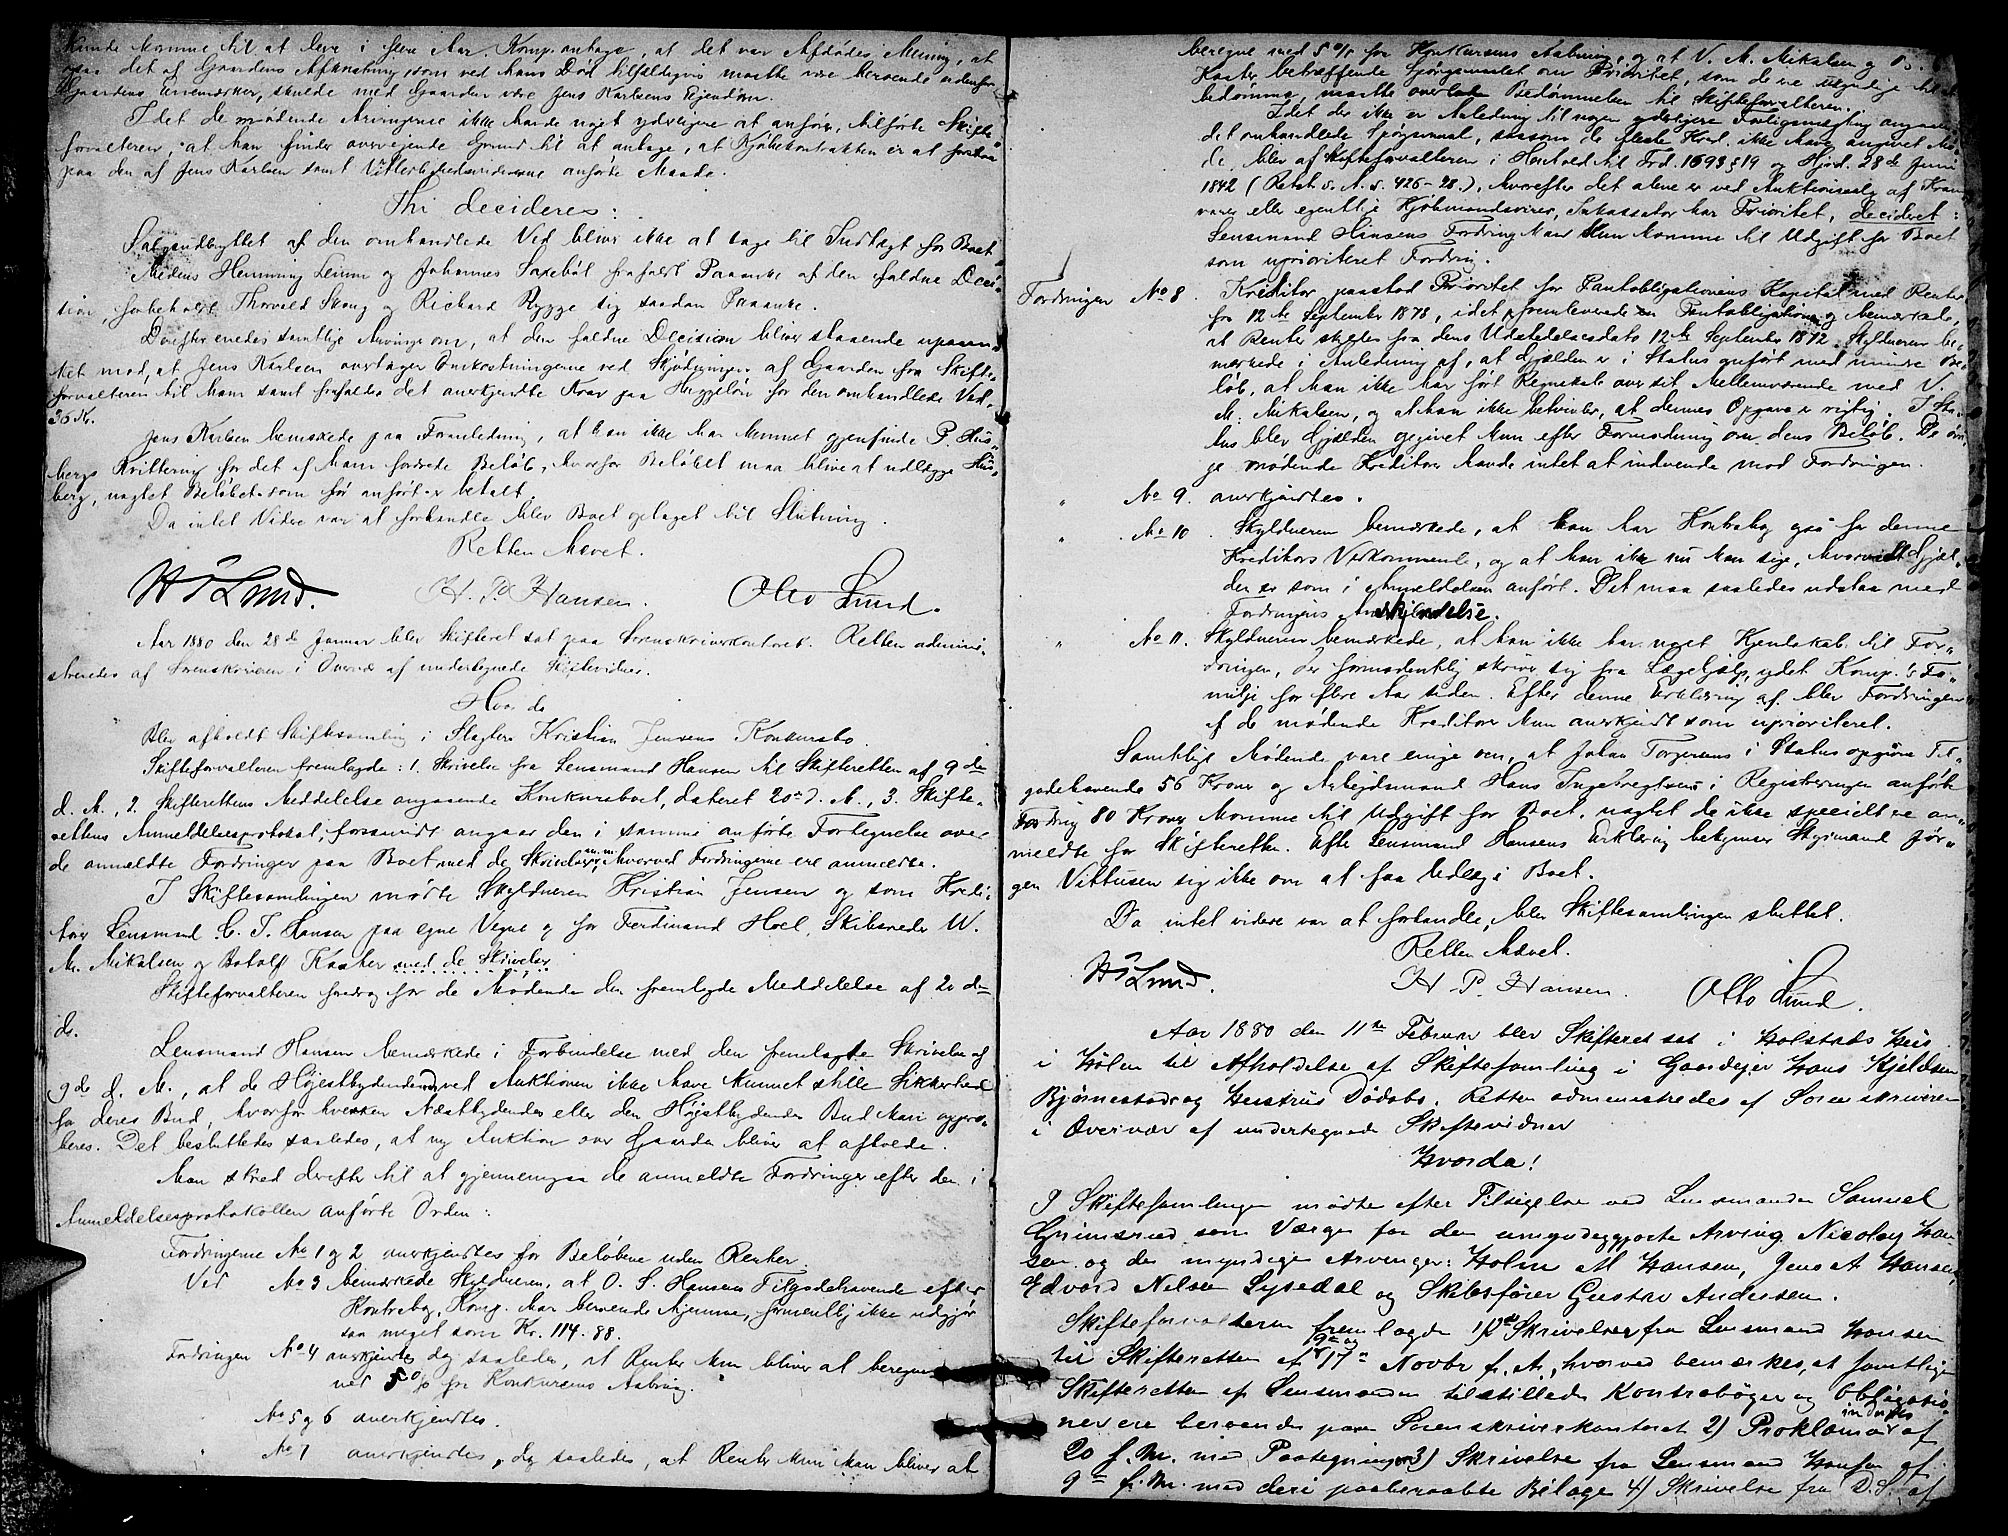 kunde komme til at leve i flere Aar. Komp. antage, at det var Afdødes Mening, at
ogsaa det af Gaardens Afkastning, som ved hans Død tilfældigvis maatte være beroende udenfor
Gaardens Enemærker, skulde med Gaarden være Jens Karlsens Ejendom.
Idet de mødende Arvingerne ikke havde noget yderligere at anføre, tilførte Skifte-
forvalteren, at han finder overvejende Grund til at antage, at Kjøbekontrakten er at forstaa
paa den af Jens Karlsen samt Vitterlighedsvidnerne anførte Maade.
Thi decideres:
Salgsudbyttet af den omhandlede Ved bliver ikke at tage til Indtægt for Boet.
Medens Henning Leine og Johannes Saxebøl frafaldt Paaanke af den faldne Deci-
sion, forbeholdt Thorvald Skaug og Richard Rygge sig saadan Paaanke.
Derefter enedes samtlige Arvinge om, at den faldne Decision bliver staaende upaaan-
ket mod, at Jens Karlsen overtager Omkostningerne ved Skjødning af Gaarden fra Skifte-
forvalteren til ham samt frafalder det anerkjendte Krav paa Huggeløn for den omhandlede Ved,
36 Kr.
Jens Karlsen bemærkede paa Foranledning, at han ikke har kunnet gjenfinde P. Hus-
bergs Kvittering for det af ham fordrede Beløb, hvorfor Beløbet maa blive at udlægge Hus-
berg, uagtet Beløbet som før anført er betalt.
Da intet Videre var at forhandle blev Boet optaget til Slutning.
Retten hævet.
H Lund. H. P. Hansen. Otto Lund.
Aar 1880 den 28de Januar blev Skifteret sat paa Sorenskriverkontoret. Retten admini-
streredes af Sorenskriveren i Overvær af undertegnede Skiftevidner.
Hvorda
Blev afholdt Skiftesamling i Slagter Kristian Jensens Konkursbo.
Skifteforvalteren fremlagde: 1. Skrivelse fra Lensmand Hansen til Skifteretten af 9de
d. M., 2. Skifterettens Meddelelse angaaende Konkursboet, dateret 20de d. M., 3. Skifte-
rettens Anmeldelsesprotokol, forsaavidt angaar den i samme anførte Fortegnelse over
de anmeldte Fordringer paa Boet med de Skrivelser m. m., hvorved Fordringerne ere anmeldte.
I Skiftesamlingen mødte Skyldneren Kristian Jensen og som Kredi-
tor Lensmand C. J. Hansen paa egne Vegne og for Ferdinand Hoel, Skibsreder W.
M. Mikalsen og Botolf Kaater med de Skrivelser
Skifteforvalteren foredrog for de Mødende den fremlagde Meddelelse af 20 de
ds.
Lensmand Hansen bemærkede i Forbindelse med den fremlagte Skrivelse af
9de d. M., at de Højestbydende ved Auktionen ikke have kunnet stille Sikkerhed
for deres Bud, hvorfor hverken Næstbydendes eller den Højestbydendes Bud kan appro-
beres. Det besluttedes saaledes, at ny Auktion over Gaarden bliver at afholde.
Man skred derefter til at gjennemgaa de anmeldte Fordringer efter den i
Anmeldelsesprotokollen anførte Orden:
Fordringerne No 1 og 2 anerkjendtes for Beløbene uden Renter.
Ved No 3 bemærkede Skyldneren, at O. S. Hansens Tilgodehavende efter
Kontrabog, Komp. har beroende hjemme, formentlig ikke udgjør
saa meget som Kr. 114.88.
Fordringen No 4 anerkjendtes dog saaledes, at Renter kun bliver at beregne
med 5 % fra Konkursens Aabning.
No 5 og 6 anerkjendtes.
No 7 anerkjendtes, dog saaledes, at Renter kun kan bliver at
beregne med 5 % fra Konkursens Aabning, og at V. M. Mikalsen og B.
Kaater betræffende Spørgsmaalet om Prioritet, som de ere uenige til at
bedømme, maatte overlade Bedømmelsen til Skifteforvalteren.
Idet der ikke er Anledning til nogen yderligere Forligsmægling angaaende
det omhandlede Spørgsmaal, saasom de fleste Kred. ikke have angivet Mø-
de, blev af Skifteforvalteren i Henhold til Frd. 1693 § 19 og Hjrd. 28de Juni
1842 (Retst. s. A. s. 426-28), hvorefter det alene er ved Auktionssalg af Kram-
varer eller egentlige Kjøbmandsvarer, Inkassator har Prioritet, decideret:
Lensmand Hansens Fordring kan kun komme til Udgift for Boet
som uprioriteret Fordring.
Fordringen No 8. Kreditor paastod Prioritet for Pantobligationens Kapital med Renter
fra 12te September 1878, idet fremleverede Pantobligationen og bemærkede,
at Renter skyldes fra dens Udstedelsesdato 12te September 1872. Skyldneren be-
mærkede i Anledning af, at Gjælden er i Status anført med mindre Be-
løb, at han ikke har ført Regnskab over sit Mellemværende med V.
M. Mikalsen, og at han ikke betvivler, at dennes Opgave er rigtig. I Sta-
tus blev Gjælden opgivet kun efter Formodning om dens Beløb. De øvri-
ge mødende Kreditorer havde intet at indvende mod Fordringen.
" No 9. anerkjendtes.
" No 10. Skyldneren bemærkede, at han har Kontrabog ogsaa for denne
Kreditors Vedkommende, og at han ikke nu kan sige, hvorvidt Gjæl-
den er som i Anmeldelsen anført. Det maa saaledes udstaa med
Fordringens Anerkjendelse.
" No 11. Skyldneren bemærkede, at han ikke har noget Kjendskab til For-
dringen, der formodentlig skriver sig fra Lægehjælp, ydet Komp.'s Fa-
milje for flere Aar siden. Efter denne Erklæring af blev Fordringen
af de mødende Kreditorer kun anerkjendt som uprioriteret.
Samtlige Mødende vare enige om, at Johan Torgersens i Status opgivne Til-
godehavende 56 Kroner og Arbejdsmand Hans Ingebregtsens i Registreringen anførte
Fordring 80 Kroner komme til Udgift for Boet, uagtet de ikke specielt ere an-
meldte for Skifteretten. Efter Lensmand Hansens Erklæring bekymrer Styrmand Jør-
gen Vittusen sig ikke om at faa Udlæg i Boet.
Da intet videre var at forhandle, blev Skiftesamlingen sluttet.
Retten hævet.
H Lund. H. P. Hansen. Otto Lund.
Aar 1880 den 11te Februar blev Skifteret sat i Holstads Hus
i Hølen til Afholdelse af Skiftesamling i Gaardejer Hans Kjeldsen
Bjørnestad og Hustrus Dødsbo. Retten administredes af Sorenskriveren
i Overvær af undertegnede Skiftevidner
Hvorda!
I Skiftesamlingen mødte efter Tilsigelse ved Lensmanden Samuel
Grimsrud som Værge for den umyndiggjorte Arving Nicolay Han-
sen og de myndige Arvinger: Holm M Hansen, Jens A Hansen,
Edvard Nilsen Lysedal og Skibsfører Gustav Andersen.
Skifteforvalteren fremlagde 1) 2de Skrivelser fra Lensmand Hansen
til Skifteretten af 9de og 17de Novbr f. A., hvorved bemærkes, at samtlige
Skifteretten af Lensmanden tilstillede Kontrabøger og Obligatio-
ner ere beroende paa Sorenskriverkontoret 2) Proklama indrykket af
20 f. M. med Paategninger 3) Skrivelse fra Lensmand Hansen af
9de f. M. med deri paaberaabte Bilage 4) Skrivelse fra D. S. af